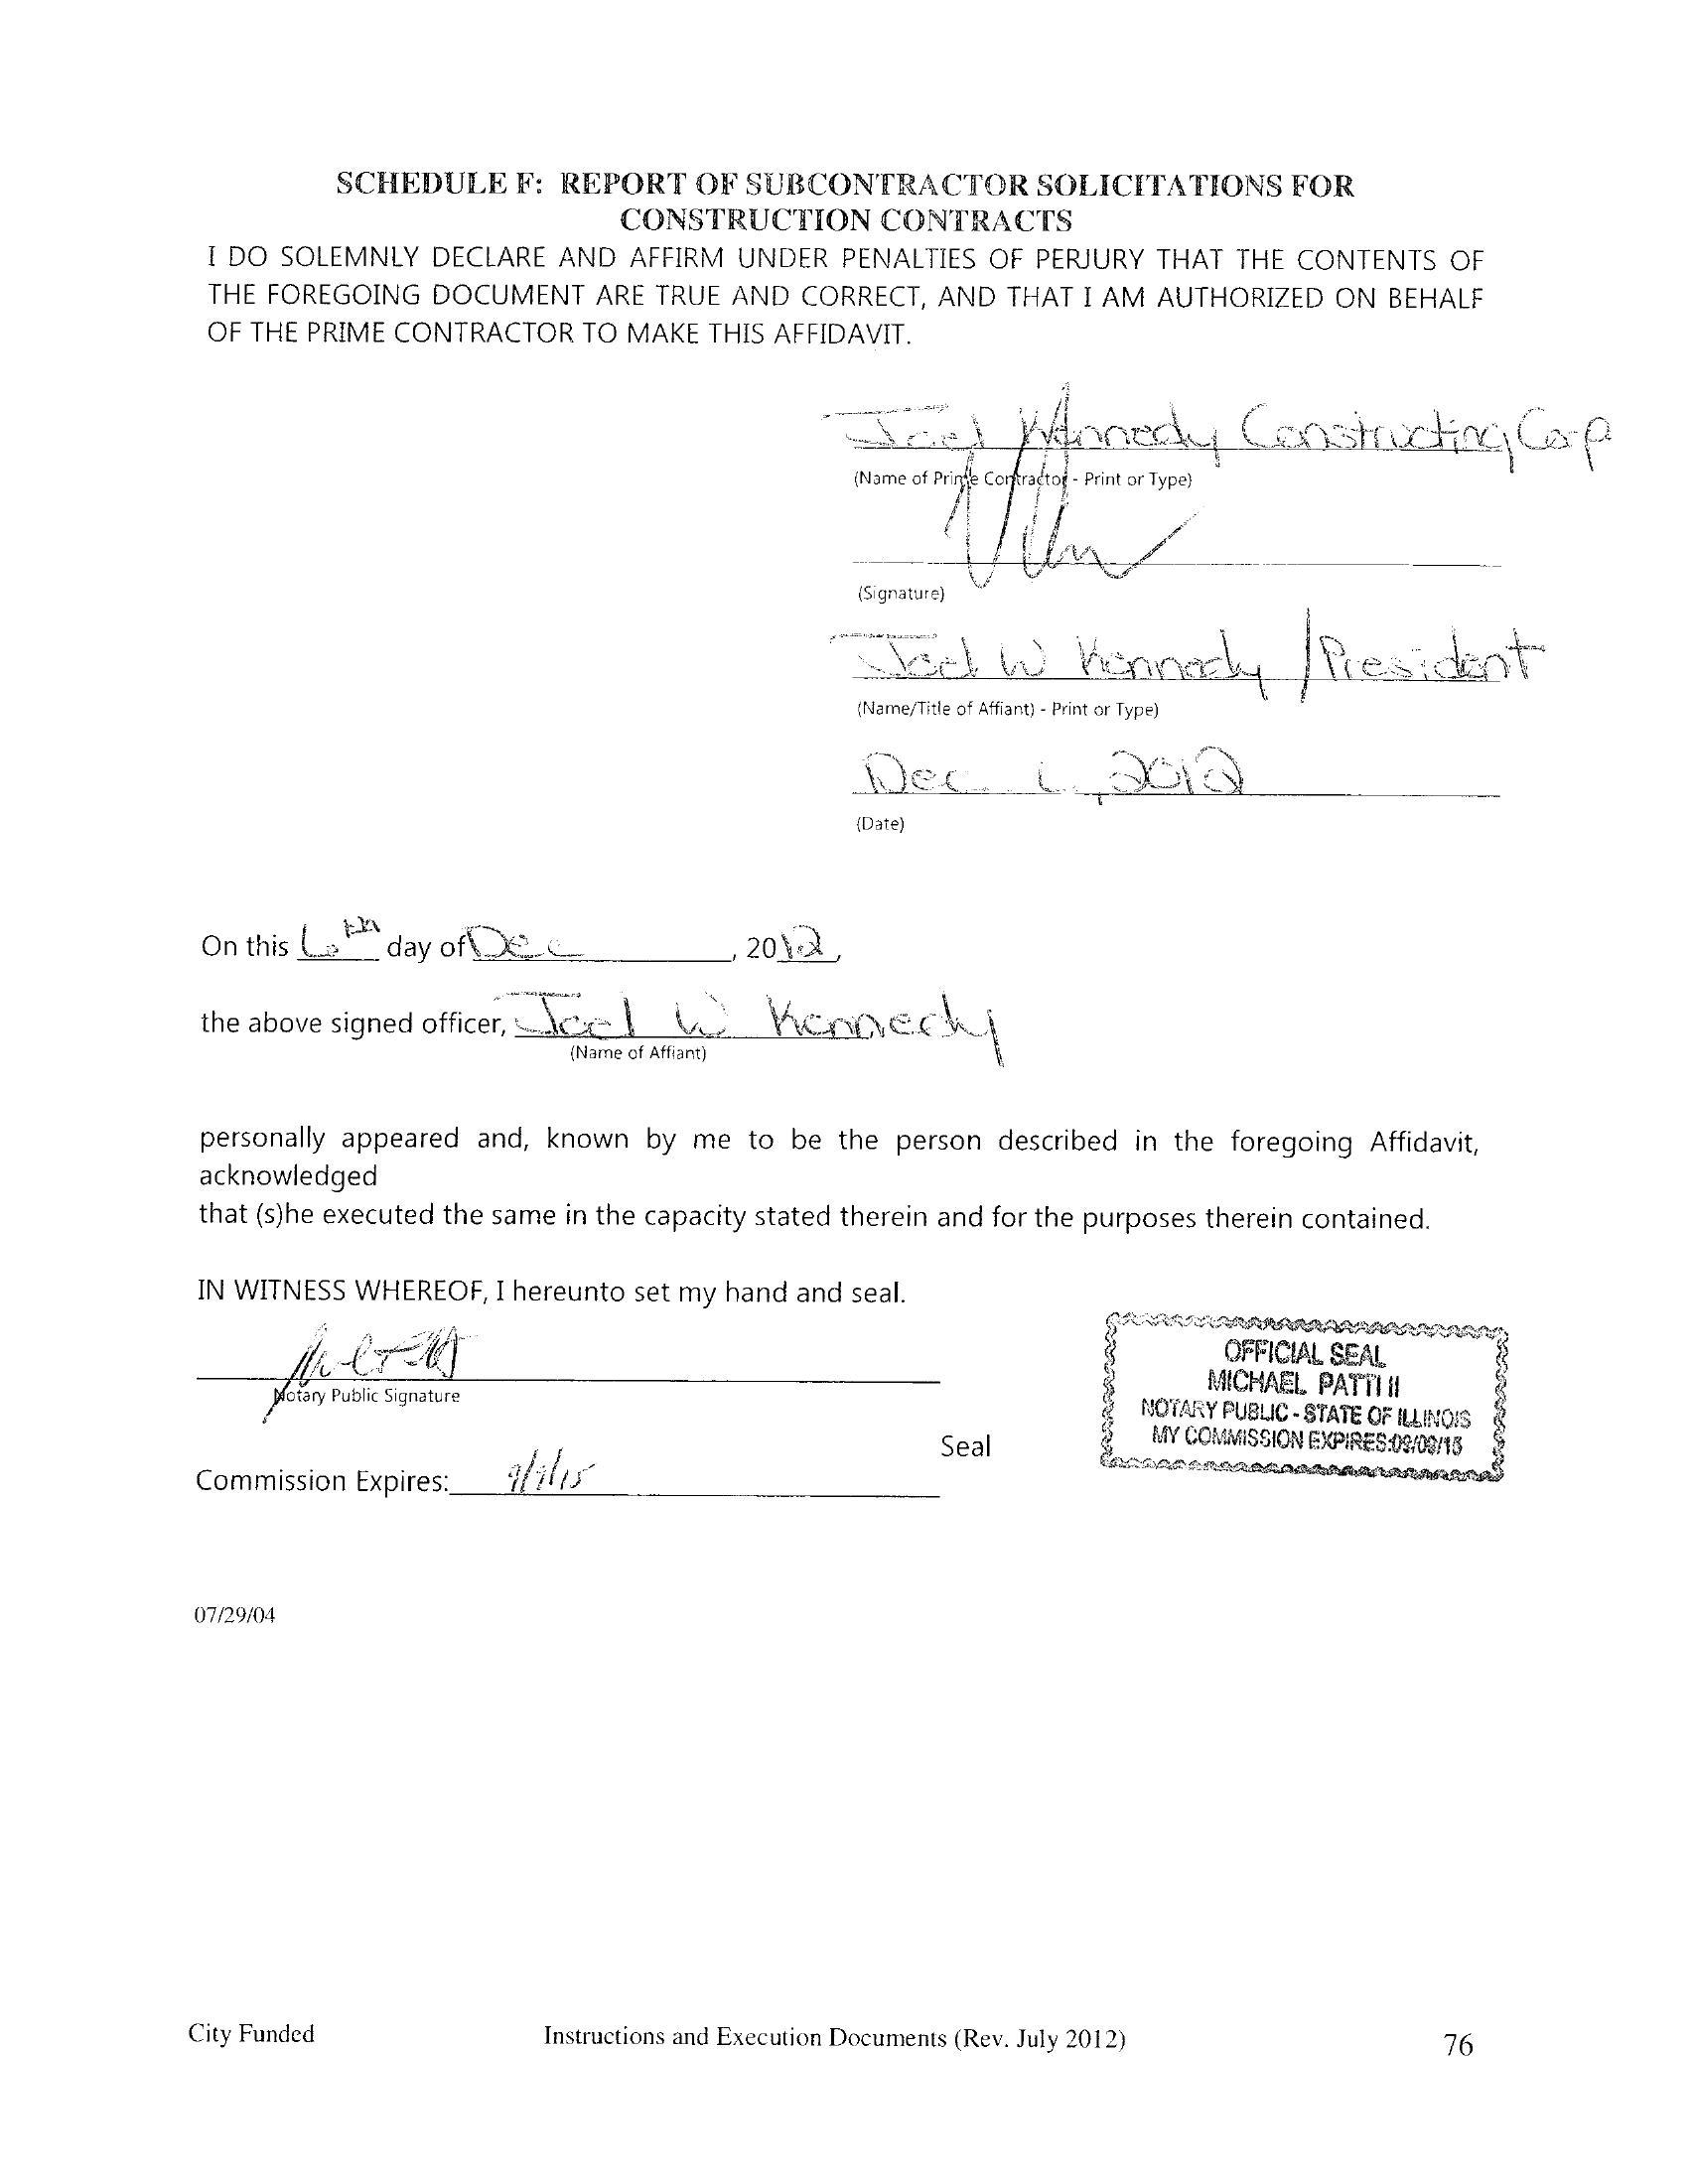 SCHEDULE F: REPORT OF SUBCONTRACTOR SOLICITATIONS FOR
CONSTRUCTION CONTRACTS
I DO SOLEMNLY DECLARE AND AFFIRM UNDER PENALTIES OF PERJURY THAT THE CONTENTS OF
THE FOREGOING DOCUMENT ARE TRUE AND CORRECT, AND THAT I AM AUTHORIZED ON BEHALF
OF THE PRIME CONTRACTOR TO MAKE THIS AFFIDAVIT.
Joel Kennedy Constructing Corp
(Name of Prime Contractor - Print or Type)
(Signature)
Joel W Kennedy / President
(Name/Title of Affiant) - Print or Type)
Dec 6, 2012
(Date)
On this 6th day of Dec , 2012,
the above signed officer, Joel W Kennedy
(Name of Affiant)
personally appeared and, known by me to be the person described in the foregoing Affidavit,
acknowledged
that (s)he executed the same in the capacity stated therein and for the purposes therein contained.
IN WITNESS WHEREOF, I hereunto set my hand and seal.
OFFICIAL SEAL
MICHAEL PATTI II
NOTARY PUBLIC - STATE OF ILLINOIS
MY COMMISSION EXPIRES:09/09/15
Notary Public Signature
Seal
Commission Expires: 9/9/15
07/29/04
City Funded Instructions and Execution Documents (Rev. July 2012) 76